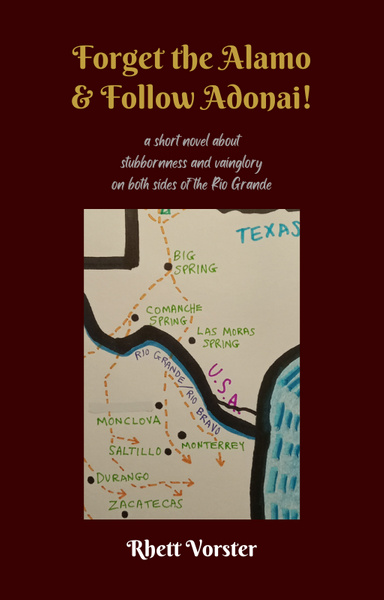 Forget the Alamo
& Follow Adonai!
a short novel about
stubbornness and vainglory
on both sides of the Rio Grande
TEXAS
BIG
SPRING
COMANCHE
SPRING
LAS MORAS
SPRING
RIO GRANDE/RIO BRAVO
U.S.A.
MONCLOVA
MONTERREY
SALTILLO
DURANGO
ZACATECAS
Rhett Vorster